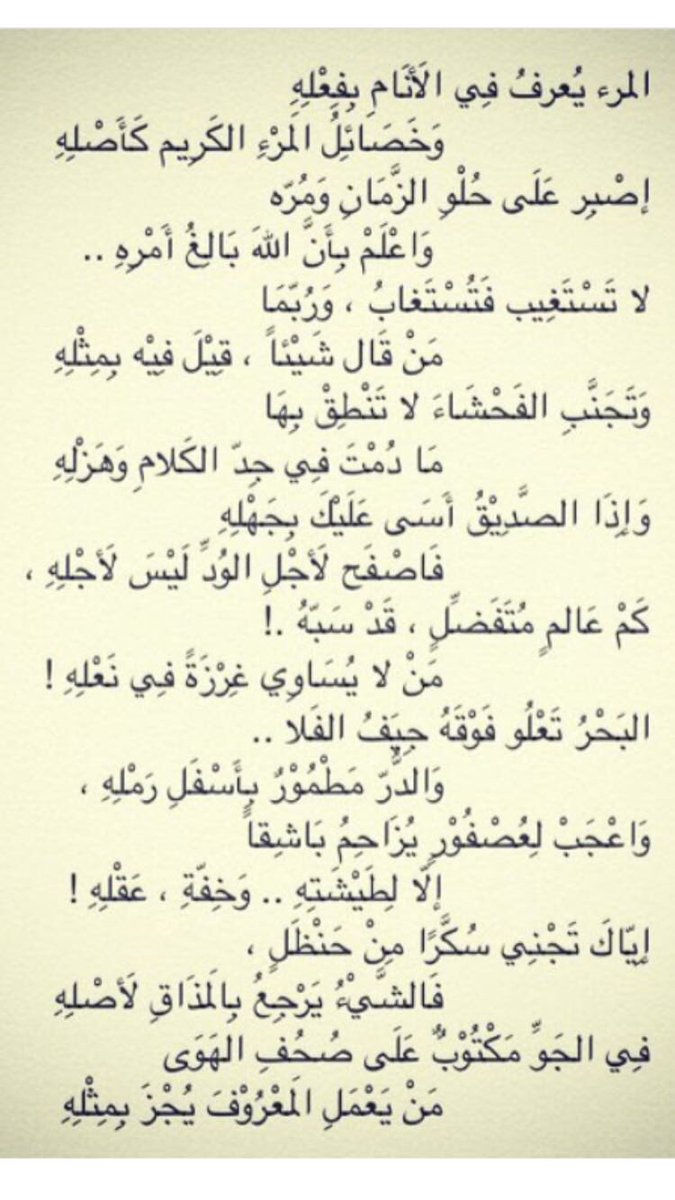 المرء يُعرفُ فِي الَأَنَامِ بِفِعْلِهِ
وَخَصَائِلُ المَرْءِ الكَرِيم كَأَصْلِهِ
إصْبِر عَلَى حُلْوِ الزَّمَانِ وَمُرّه
وَاعْلَمْ بِأَنَّ اللهَ بَالِغُ أَمْرِهِ ..
لا تَسْتَغِيب فَتُسْتَغابُ ، وَرُبّمَا
مَنْ قَال شَيْئاً ، قِيْلَ فِيْه بِمِثْلِهِ
وَتَجَنَّبِ الفَحْشَاءَ لا تَنْطِقْ بِهَا
مَا دُمْتَ فِي جِدّ الكَلامِ وَهَزْلِهِ
وَإِذَا الصَّدِيْقُ أَسَى عَلَيْكَ بِجَهْلِهِ
فَاصْفَح لَأَجْلِ الوُدِّ لَيْسَ لَأَجْلِهِ ،
كَمْ عَالمٍ مُتَفَضِّلٍ ، قَدْ سَبّهُ .!
مَنْ لا يُسَاوِي غِرْزَةً فِي نَعْلِهِ !
البَحْرُ تَعْلُو فَوْقَهُ جِيَفُ الفَلا ..
وَالدُّرّ مَطْمُوْرٌ بِأَسْفَلِ رَمْلِهِ ،
وَاعْجَبْ لِعُصْفُوْرٍ يُزَاحِمُ بَاشِقاً
إلّا لِطَيْشَتِهِ .. وَخِفّةِ ، عَقْلِهِ !
إِيّاكَ تَجْنِي سُكَّرًا مِنْ حَنْظَلٍ ،
فَالشَّيْءُ يَرْجِعُ بِالمَذَاقِ لَأصْلِهِ
فِي الجَوِّ مَكْتُوْبٌ عَلَى صُحُفِ الهَوَى
مَنْ يَعْمَلِ المَعْرُوْفَ يُجْزَ بِمِثْلِهِ